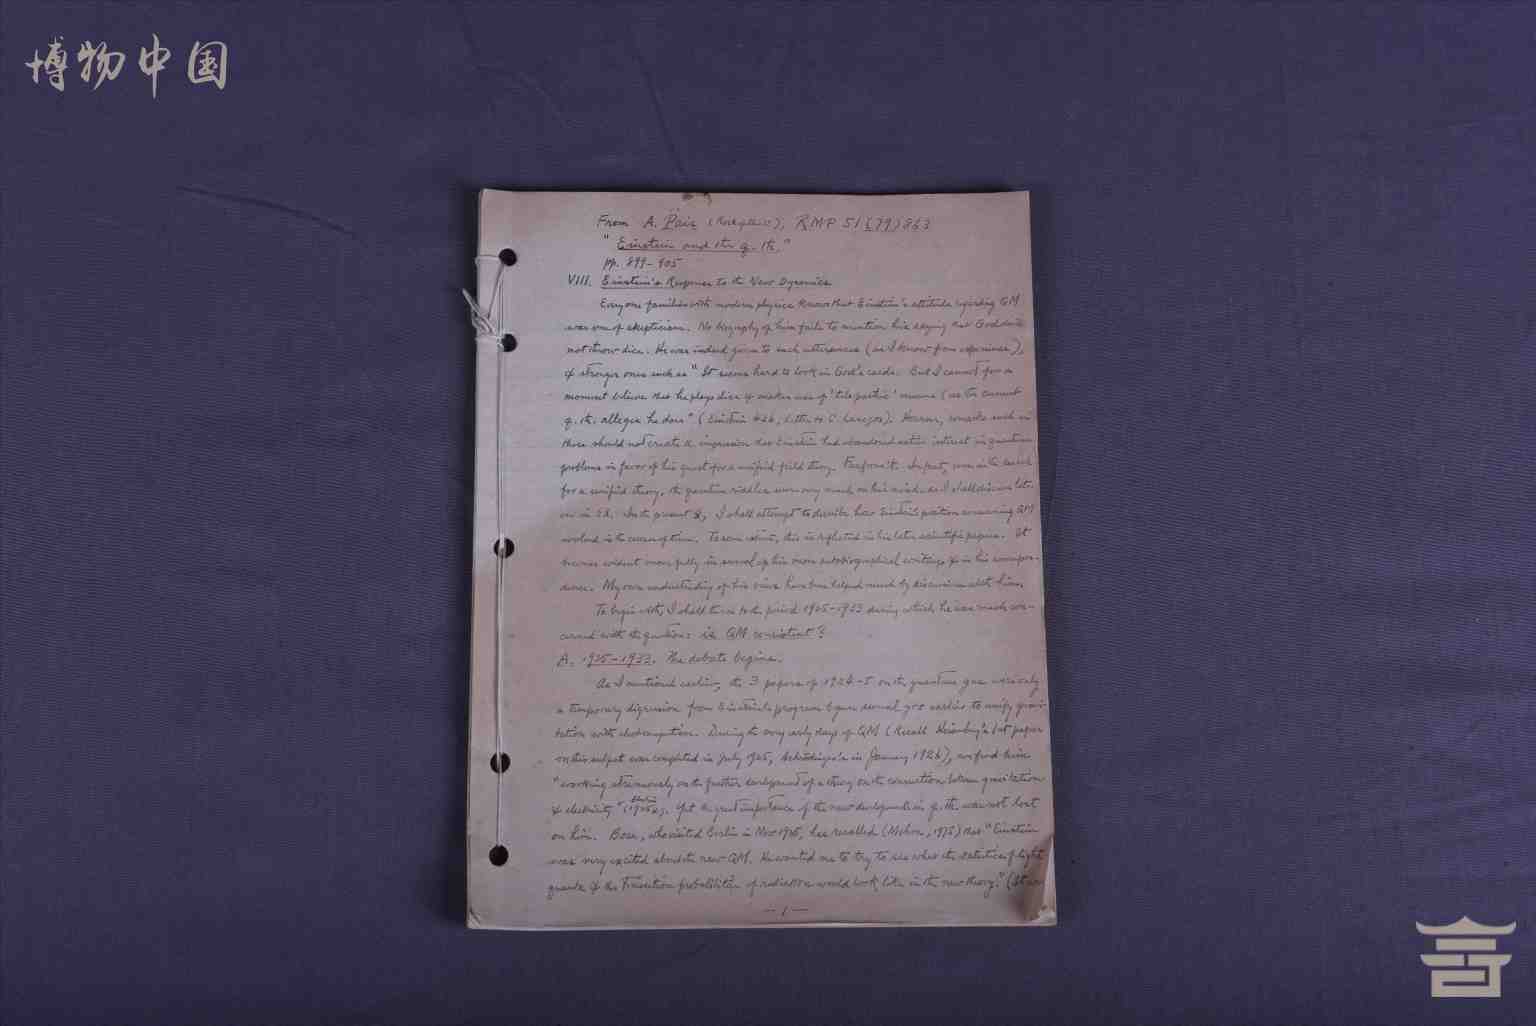 博物中国
From A. Pais (Rockefeller), RMP 51 (79) 863
"Einstein and the q. th."
pp. 899-905
VIII. Einstein's Response to the New Dynamics
Everyone familiar with modern physics knows that Einstein's attitude regarding QM
was one of skepticism. No biography of him fails to mention his saying that God does
not throw dice. He was indeed given to such utterances (as I know from experience),
& stronger ones such as "It seems hard to look in God's cards. But I cannot for a
moment believe that he plays dice & makes use of 'telepathic' means (as the current
q. th. alleges he does" (Einstein #26, Letter to C. Lanczos). However, remarks such as
these should not create the impression that Einstein had abandoned active interest in quantum
problems in favor of his quest for a unified field theory. Far from it. In fact, even in the search
for a unified theory, the quantum riddles were very much on his mind, as I shall discuss later
on in IX. In the present §, I shall attempt to describe how Einstein's position concerning QM
evolved in the course of time. To some extent, this is reflected in his later scientific papers. It
becomes evident more fully in several of his more autobiographical writings & in his correspon-
dence. My own understanding of his views has been helped much by discussions with him.
To begin with, I shall turn to the period 1925-1933 during which he was much con-
cerned with the question: is QM consistent?
A. 1925-1933. The debate begins.
As I mentioned earlier, the 3 papers of 1924-5 on the quantum gas were only
a temporary digression from Einstein's program begun several yrs earlier to unify gravi-
tation with electromagnetism. During the very early days of QM (Recall Heisenberg's 1st paper
on this subject was completed in July 1925, Schrödinger's in January 1926), we find him
"working strenuously on the further development of a theory on the connection between gravitation
& electricity" (Einstein 1925). Yet the great importance of the new developments in q. th. was not lost
on him. Bose, who visited Berlin in Nov 1925, has recalled (Mehra, 1975) that "Einstein
was very excited about the new QM. He wanted me to try to see what the statistics of light
quanta & the Transition probabilities of radiation would look like in the new theory." (
-1-